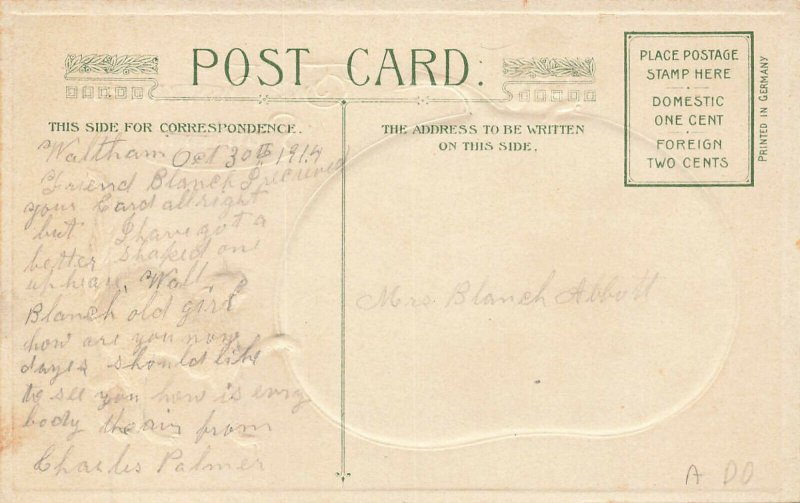 POST CARD.
THIS SIDE FOR CORRESPONDENCE.
Waltham Oct 30th 1914
Friend Blanch I recieved
your Card allright
but I have got a
better shaped one
up hear. Well
Blanch old girl
how are you now
dayes should like
to see you how is every
body their from
Charles Palmer
THE ADDRESS TO BE WRITTEN
ON THIS SIDE.
Mrs Blanch Abbott
PLACE POSTAGE
STAMP HERE
DOMESTIC
ONE CENT
FOREIGN
TWO CENTS
PRINTED IN GERMANY
A DO